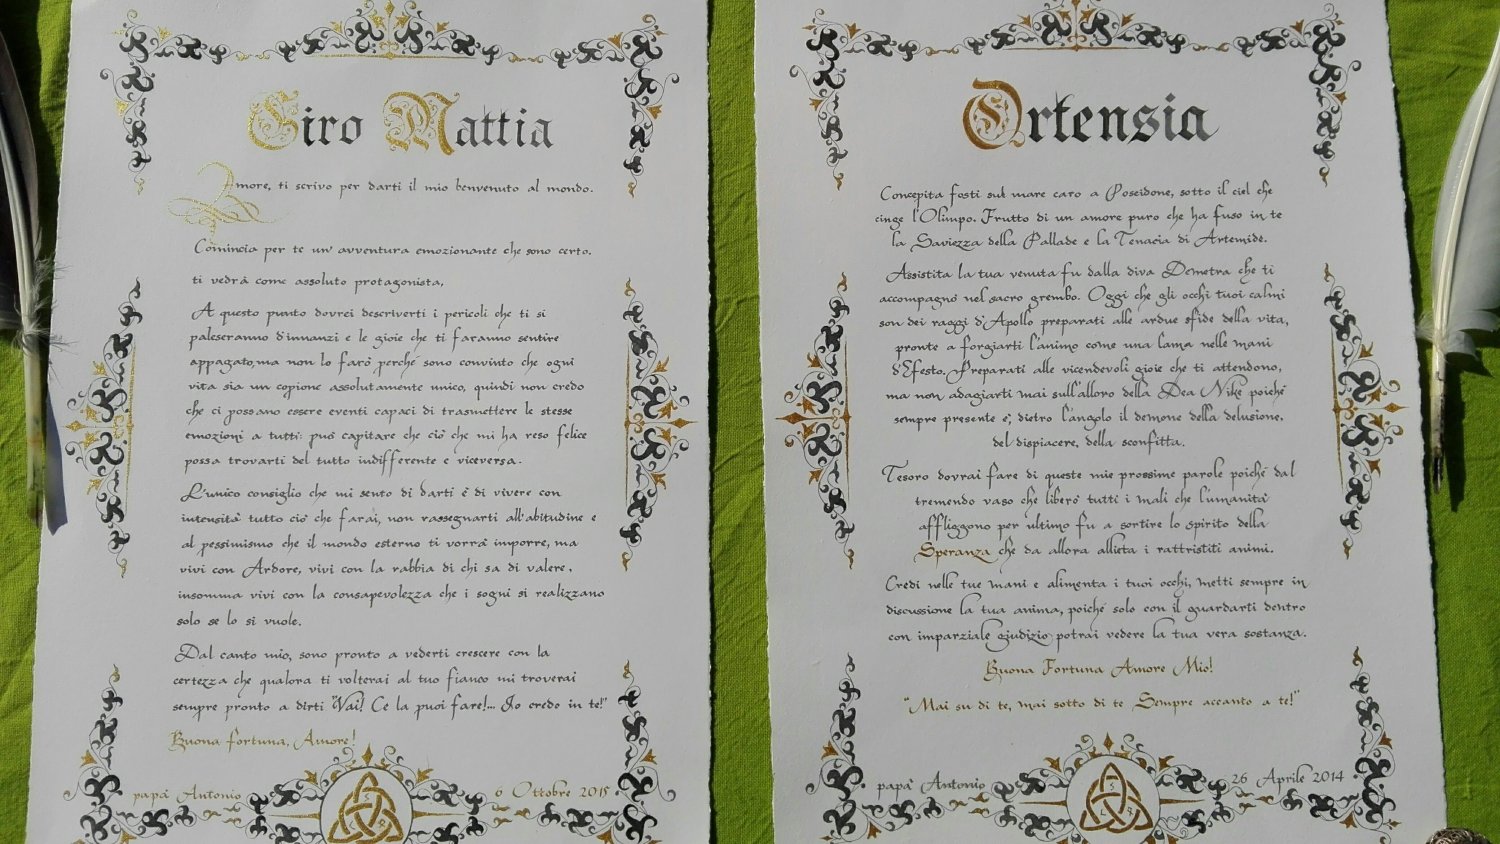 Ciro Mattia
Amore, ti scrivo per darti il mio benvenuto al mondo.
Comincia per te un' avventura emozionante che sono certo.
ti vedrà come assoluto protagonista.
A questo punto dovrei descriverti i pericoli che ti si
paleseranno d'innanzi e le gioie che ti faranno sentire
appagato, ma non lo farò perché sono convinto che ogni
vita sia un copione assolutamente unico, quindi non credo
che ci possano essere eventi capaci di trasmettere le stesse
emozioni a tutti: può capitare che ciò che mi ha reso felice
possa trovarti del tutto indifferente e viceversa.
L'unico consiglio che mi sento di darti è di vivere con
intensità tutto ciò che farai, non rassegnarti all'abitudine e
al pessimismo che il mondo esterno ti vorrà imporre, ma
vivi con Ardore, vivi con la rabbia di chi sa di valere,
insomma vivi con la consapevolezza che i sogni si realizzano
solo se lo si vuole.
Dal canto mio, sono pronto a vederti crescere con la
certezza che qualora ti volterai al tuo fianco mi troverai
sempre pronto a dirti "Vai! Ce la puoi fare!... Io credo in te!"
Buona fortuna, Amore!
papà Antonio
6 Ottobre 2015
Ortensia
Concepita fosti sul mare caro a Poseidone, sotto il ciel che
cinge l'Olimpo. Frutto di un amore puro che ha fuso in te
la Saviezza della Pallade e la Tenacia di Artemide.
Assistita la tua venuta fu dalla diva Demetra che ti
accompagnò nel sacro grembo. Oggi che gli occhi tuoi calmi
son dei raggi d'Apollo preparati alle ardue sfide della vita,
pronte a forgiarti l'animo come una lama nelle mani
d'Efesto. Preparati alle vicendevoli gioie che ti attendono,
ma non adagiarti mai sull'alloro della Dea Nike poiché
sempre presente è, dietro l'angolo il demone della delusione,
del dispiacere, della sconfitta.
Tesoro dovrai fare di queste mie prossime parole poiché dal
tremendo vaso che liberò tutti i mali che l'umanità
affliggono per ultimo fu a sortire lo spirito della
Speranza che da allora allieta i rattristiti animi.
Credi nelle tue mani e alimenta i tuoi occhi, metti sempre in
discussione la tua anima, poiché solo con il guardarti dentro
con imparziale giudizio potrai vedere la tua vera sostanza.
Buona Fortuna Amore Mio!
"Mai su di te, mai sotto di te Sempre accanto a te!"
papà Antonio
26 Aprile 2014